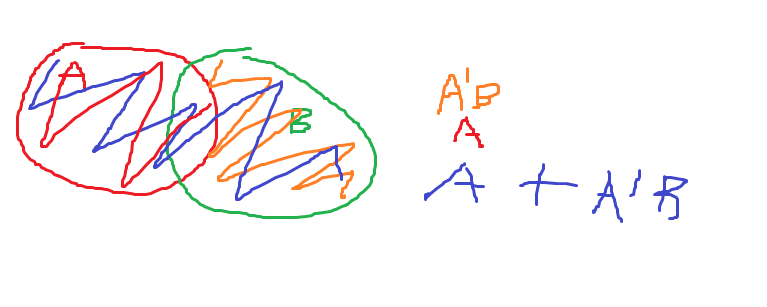 A
B
A'B
A
A + A'B